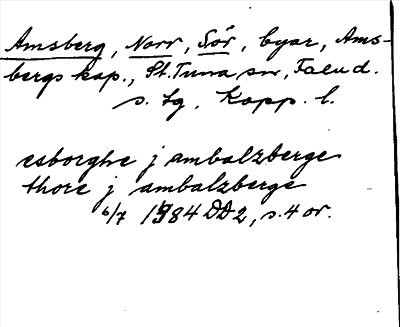 Amsberg, Norr, Sör, byar, Ams-
bergs kap., St. Tuna sn, Falu d.
s. lg. Kopp. l.
esborghe j ambalzberge
thore j ambalzberge
6/7 1384 DD2, s. 4 or.